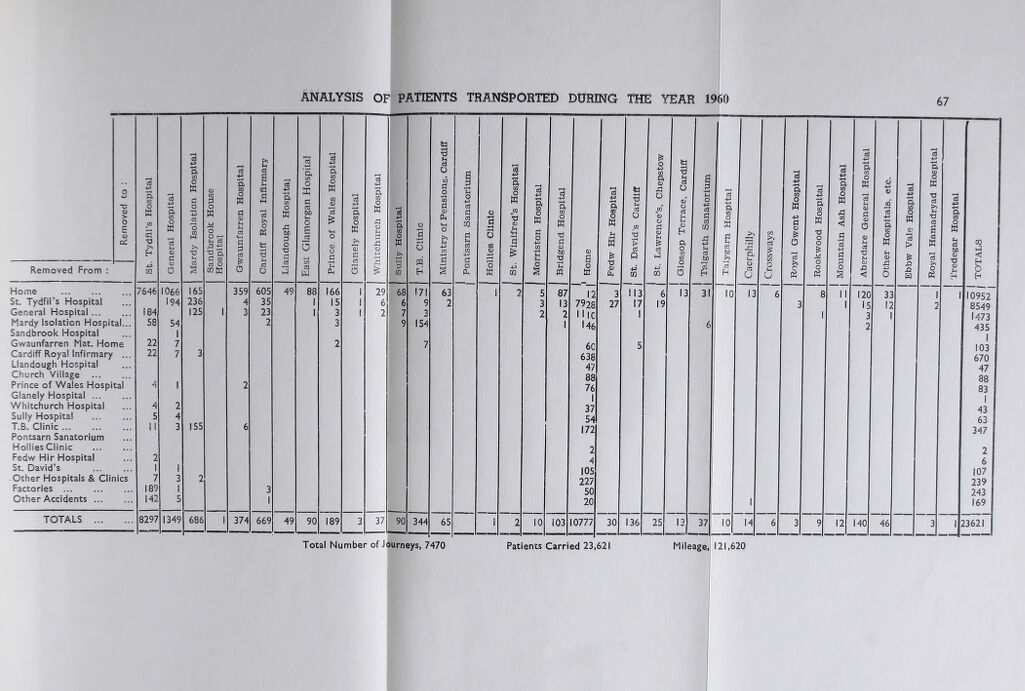 ANALYSIS OF PATIENTS TRANSPORTED DURING THE YEAR 1960
67
Removed to :
St. Tydfil's Hospital
General Hospital
Mardy Isolation Hospital
Sandbrook House Hospital
Gwaunfarren Hospital
Cardiff Royal Infirmary
Llandough Hospital
East Glamorgan Hospital
Prince of Wales Hospital
Glanely Hospital
Whitchurch Hospital
Sully Hospital
T.B. Clinic
Ministry of Pensions, Cardiff
Pontsarn Sanatorium
Hollies Clinic
St. Winifred's Hospital
Morriston Hospital
Bridgend Hospital
Home
Fedw Hir Hospital
St. David's Cardiff
St. Lawrence's, Chepstow
Glossop Terrace, Cardiff
Talgarth Sanatorium
Talygarn Hospital
Caerphilly
Crossways
Royal Gwent Hospital
Rookwood Hospital
Mountain Ash Hospital
Aberdare General Hospital
Other Hospitals, etc.
Ebbw Vale Hospital
Royal Hamadryad Hospital
Tredegar Hospital
TOTALS
Removed From :
Home ... ... ... 7646 1066 165 359 605 49 88 166 1 29 68 171 63 1 2 5 87 12 3 113 6 13 31 10 13 6 8 11 120 33 1 1 10952
St. Tydfil's Hospital ... 194 236 4 35 1 15 1 6 6 9 2 3 13 7928 27 17 19 3 1 15 12 2 8549
General Hospital ... ... 184 125 1 3 23 1 3 1 2 7 3 2 2 1110 1 1 3 1 1473
Mardy Isolation Hospital... 58 54 2 3 9 154 1 146 6 2 435
Sandbrook Hospital ... 1 1
Gwaunfarren Mat. Home 22 7 2 7 60 5 103
Cardiff Royal Infirmary ... 22 7 3 638 670
Llandough Hospital ... 47 47
Church Village ... ... 88 88
Prince of Wales Hospital 4 1 2 76 83
Glanely Hospital ... ... 1 1
Whitchurch Hospital ... 4 2 37 43
Sully Hospital ... ... 5 4 54 63
T.B. Clinic ... ... ... 11 3 155 6 172 347
Pontsarn Sanatorium ...
Hollies Clinic ... ... 2 2
Fedw Hir Hospital ... 2 4 6
St. David's ... ... 1 1 105 107
Other Hospitals & Clinics 7 3 2 227 239
Factories ... ... ... 189 1 3 50 243
Other Accidents ... ... 142 5 1 20 1 169
TOTALS ... ... 8297 1349 686 1 374 669 49 90 189 3 37 90 344 65 1 2 10 103 10777 30 136 25 13 37 10 14 6 3 9 12 140 46 3 1 23621
Total Number of Journeys, 7470 Patients Carried 23,621 Mileage, 121,620